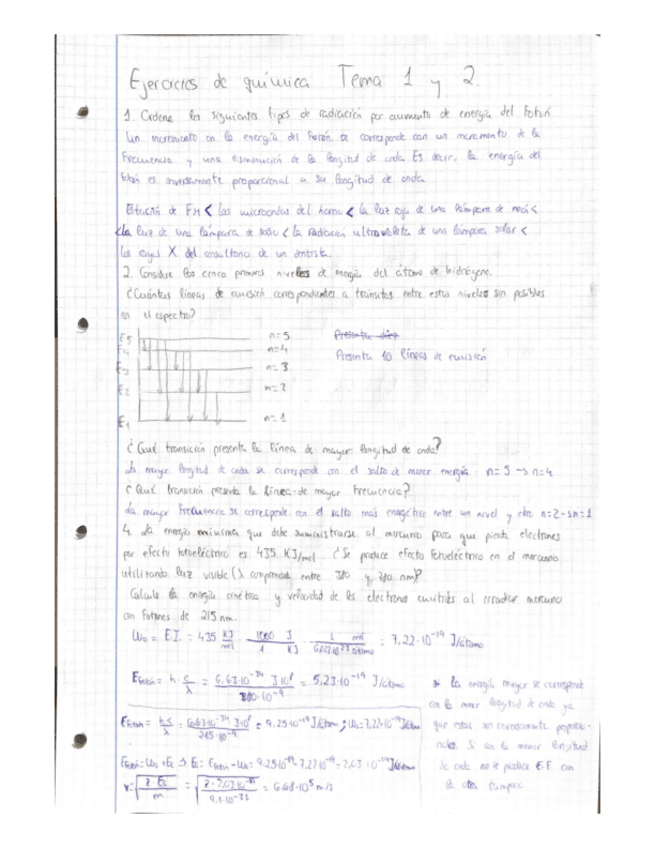 Ejercicios de química Tema 1 y 2.
1. Ordene los siguientes tipos de radiación por aumento de energía del fotón
Un incremento en la energía del fotón se corresponde con un incremento de la
frecuencia y una disminución de la longitud de onda Es decir, la energía del
fotón es inversamente proporcional a su longitud de onda
Estación de FM < las microondas del horno < la luz roja de una lámpara de neón <
<la luz de una lámpara de sodio < la radiación ultravioleta de una lámpara solar <
los rayos X del consultorio de un dentista.
2. Considere los cinco primeros niveles de energía del átomo de hidrógeno.
¿Cuántas líneas de emisión correspondientes a tránsitos entre estos niveles son posibles
en el espectro?
E5 n=5 Presenta diez
E4 n=4 Presenta 10 líneas de emisión
E3 n=3
E2 n=2
E1 n=1
¿Qué transición presenta la línea de mayor longitud de onda?
La mayor longitud de onda se corresponde con el salto de menor energía n=5 → n=4
¿Qué transición presenta la línea de mayor frecuencia?
La mayor frecuencia se corresponde con el salto más energético entre un nivel y otro n=2→n=1
4. La energía mínima que debe suministrarse al mercurio para que pierda electrones
por efecto fotoeléctrico es 435 KJ/mol. ¿Se produce efecto fotoeléctrico en el mercurio
utilizando luz visible (λ comprendida entre 380 y 780 nm)?
Calcule la energía cinética y velocidad de los electrones emitidos al irradiar mercurio
con fotones de 215 nm.
W₀ = E.I. = 435 KJ/mol · 1000 J/1 KJ · 1 mol/6.022·10²³ átomo = 7,22·10⁻¹⁹ J/átomo
Efotón = h · c/λ = 6.63·10⁻³⁴ 3·10⁸/380·10⁻⁹ = 5.23·10⁻¹⁹ J/átomo
* La energía mayor se corresponde
con la menor longitud de onda ya
que estas son inversamente proporcio-
nales. Si con la menor longitud
de onda no se produce E.F. con
la otra tampoco
Efotón = h·c/λ = 6.63·10⁻³⁴ 3·10⁸/215·10⁻⁹ = 9.25·10⁻¹⁹ J/átomo ; W₀=7,22·10⁻¹⁹ J/átomo
Efotón = W₀ + Ec → Ec = Efotón - W₀ = 9.25·10⁻¹⁹ - 7.22·10⁻¹⁹ = 2,03·10⁻¹⁹ J/átomo
v = √2·Ec/m = √2·2.03·10⁻¹⁹/9.1·10⁻³¹ = 6.68·10⁵ m/s